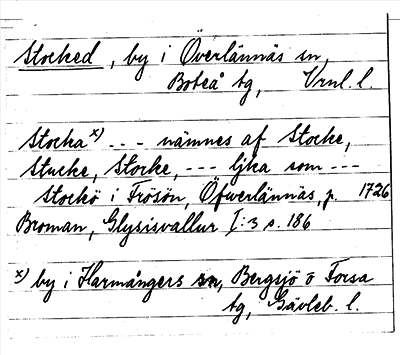 Stocked, by i Överlännäs sn,
Boteå tg, Vrnl. l.
Stocka x) - - - nämnes af Stocke,
Stucke, Storke, - - - ljka som - - -
Stockö i Frösön, Öfwerlännäs, p. 1726
Broman, Glysisvallur I:3 s. 186
x) by i Harmångers sn, Bergsjö o Forsa
tg, Gävleb. l.